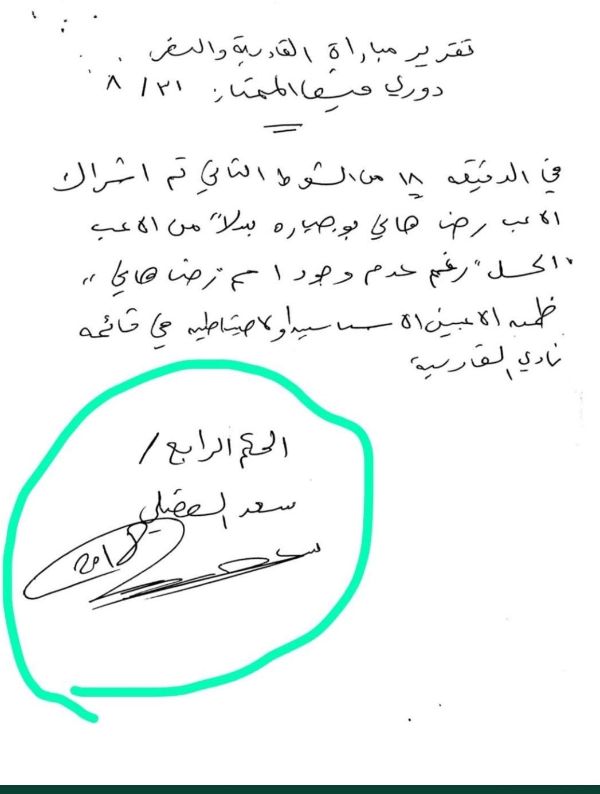 تقرير مباراة القادسية والنصر
دوري فيفا الممتاز ٣١ / ٨
في الدقيقه ١٨ من الشوط الثاني تم اشراك
الاعب رضا هاني بوجباره بدلاً من الاعب
رغم عدم وجود اسم رضا هاني "
الاعبين الاساسيه او لاحتياطيه في قائمه
نادي القادسية
الحكم الرابع /
سعد